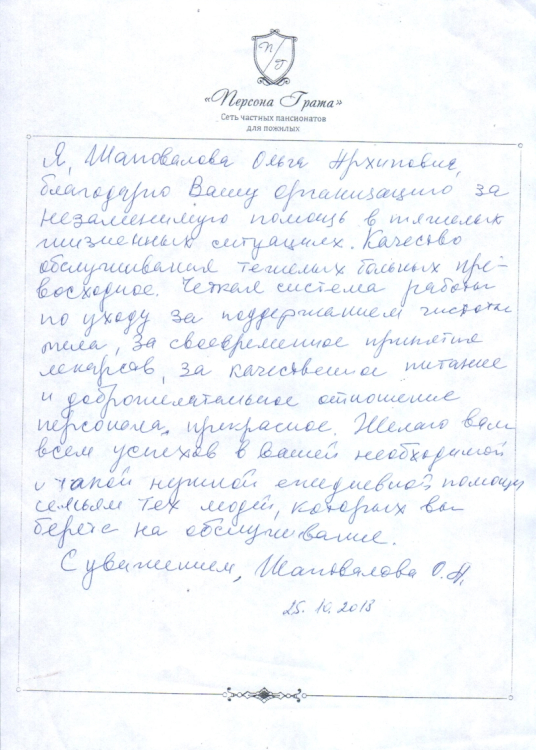 П/Г
«Персона Грата»
Сеть частных пансионатов
для пожилых
Я, Шаповалова Ольга Архиповна,
благодарю Вашу организацию за
незаменимую помощь в тяжелых
жизненных ситуациях. Качество
обслуживания тяжелых больных пре-
восходное. Четкая система работы
по уходу за поддержанием чистоты
тела, за своевременное принятие
лекарств, за качественное питание
и доброжелательное отношение
персонала, прекрасное. Желаю вам
всем успехов в вашей необходимой
и такой нужной ежедневной помощи
семьям тех людей, которых вы
берете на обслуживание.
С уважением, Шаповалова О.А.
25. 10. 2013